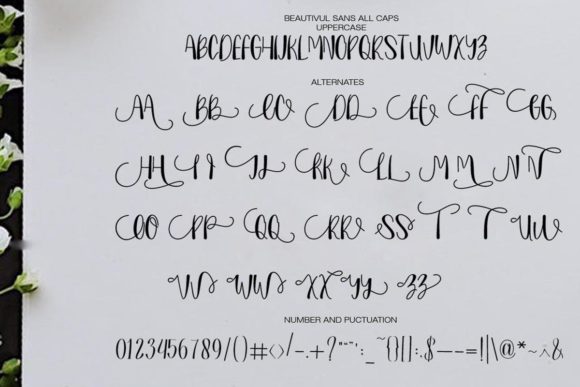 BEAUTIVUL SANS ALL CAPS
UPPERCASE
ABCDEFGHIJKLMNOPQRSTUVWXYZ
ALTERNATES
AA BB CC DD EE FF GG
HH II JJ KK LL MM NN
OO PP QQ RR SS T T UU
VV WW XX YY ZZ
NUMBER AND PUCTUATION
0123456789/()#<>/-.+?"":;_~{}[]:.$—-=!|\@*~^&